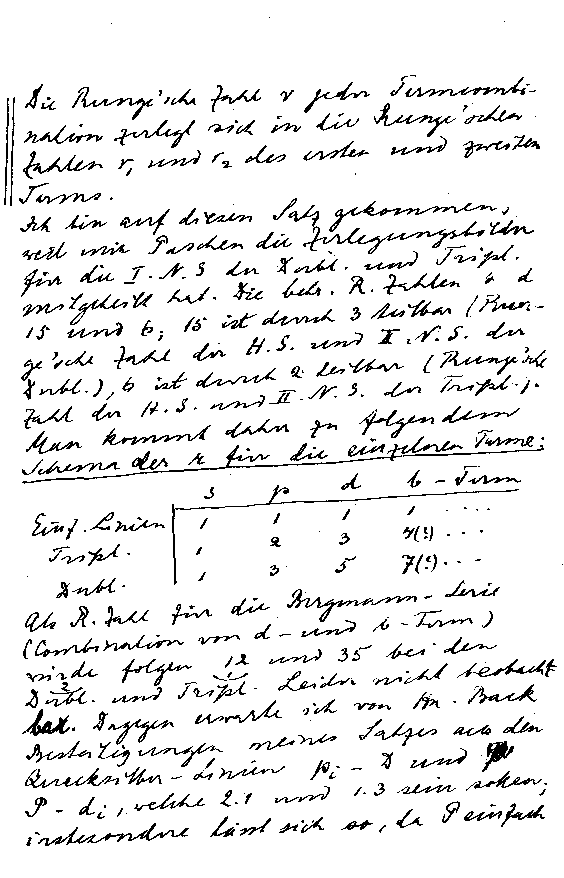 Die Runge'sche Zahl r jeder Termcombi-
nation zerlegt sich in die Runge'schen
Zahlen r₁ und r₂ des ersten und zweiten
Terms.
Ich bin auf diesen Satz gekommen,
weil mir Paschen die Zerlegungsbilder
für die I. N. S der Dubl. und Tripl.
mitgeteilt hat. Die betr. R. Zahlen d
15 und 6; 15 ist durch 3 teilbar (Run-
ge'sche Zahl der H. S. und II. N. S. der
Dubl.), 6 ist durch 2 teilbar (Runge'sche
Zahl der H. S. und II. N. S. der Tripl.).
Man kommt daher zu folgendem
Schema der r für die einzelnen Terme:
s p d b - Term
Einf. Linien 1 1 1 1 ....
Tripl. 1 2 3 4(?) ...
Dubl. 1 3 5 7(?) ...
Als R. Zahl für die Bergmann-Serie
(Combination von d- und b-Term)
würde folgen 12 und 35 bei den
Dubl. und Tripl. Leider nicht beobacht-
bar. Dagegen erwarte ich von Hn. Back
Bestätigungen meines Satzes aus den
Quecksilber-Linien pᵢ - D und
P - dᵢ, welche 2.1 und 1.3 sein sollen;
insbesondere lässt sich so, da P einfach